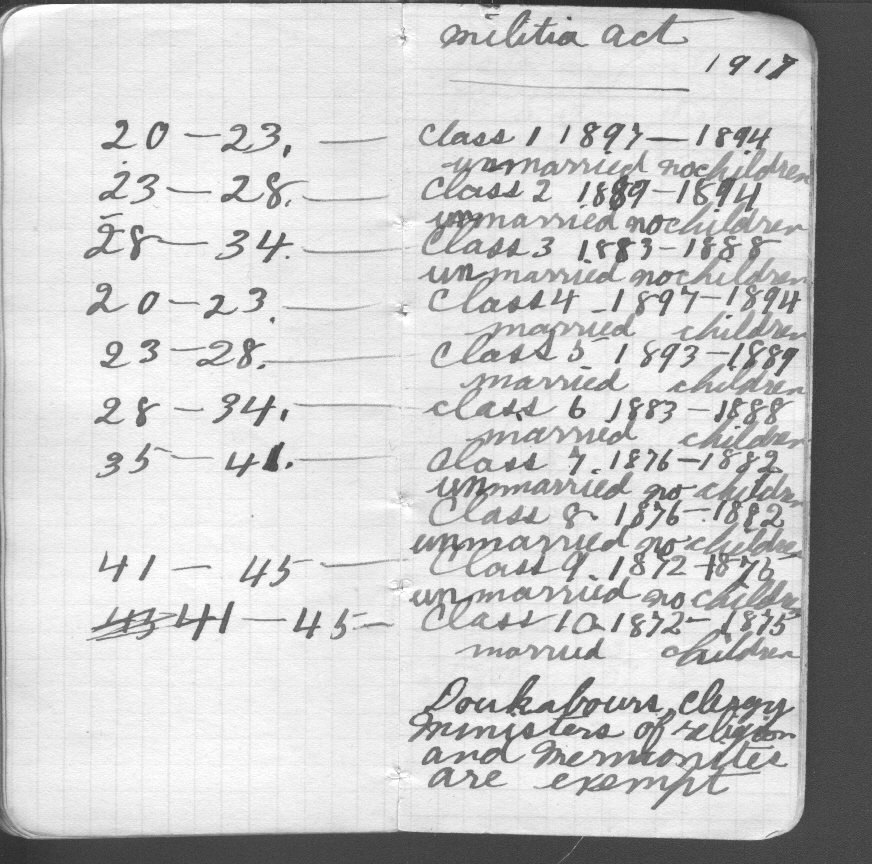 militia act
1917
20 — 23. — Class 1 1897 — 1894
unmarried no children
23 — 28. — Class 2 1889 — 1894
unmarried no children
28 — 34. — Class 3 1883 — 1888
unmarried no children
20 — 23. — Class 4 1897 — 1894
married children
23 — 28. — Class 5 1893 — 1889
married children
28 — 34. — class 6 1883 — 1888
married children
35 — 41. — Class 7. 1876 — 1882
unmarried no children
Class 8 1876 — 1882
unmarried no children
41 — 45 — Class 9 1872 — 1875
unmarried no children
41 — 45 — Class 10 1872 — 1875
married children
Doukabours, clergy
ministers of religion
and Mennonites
are exempt